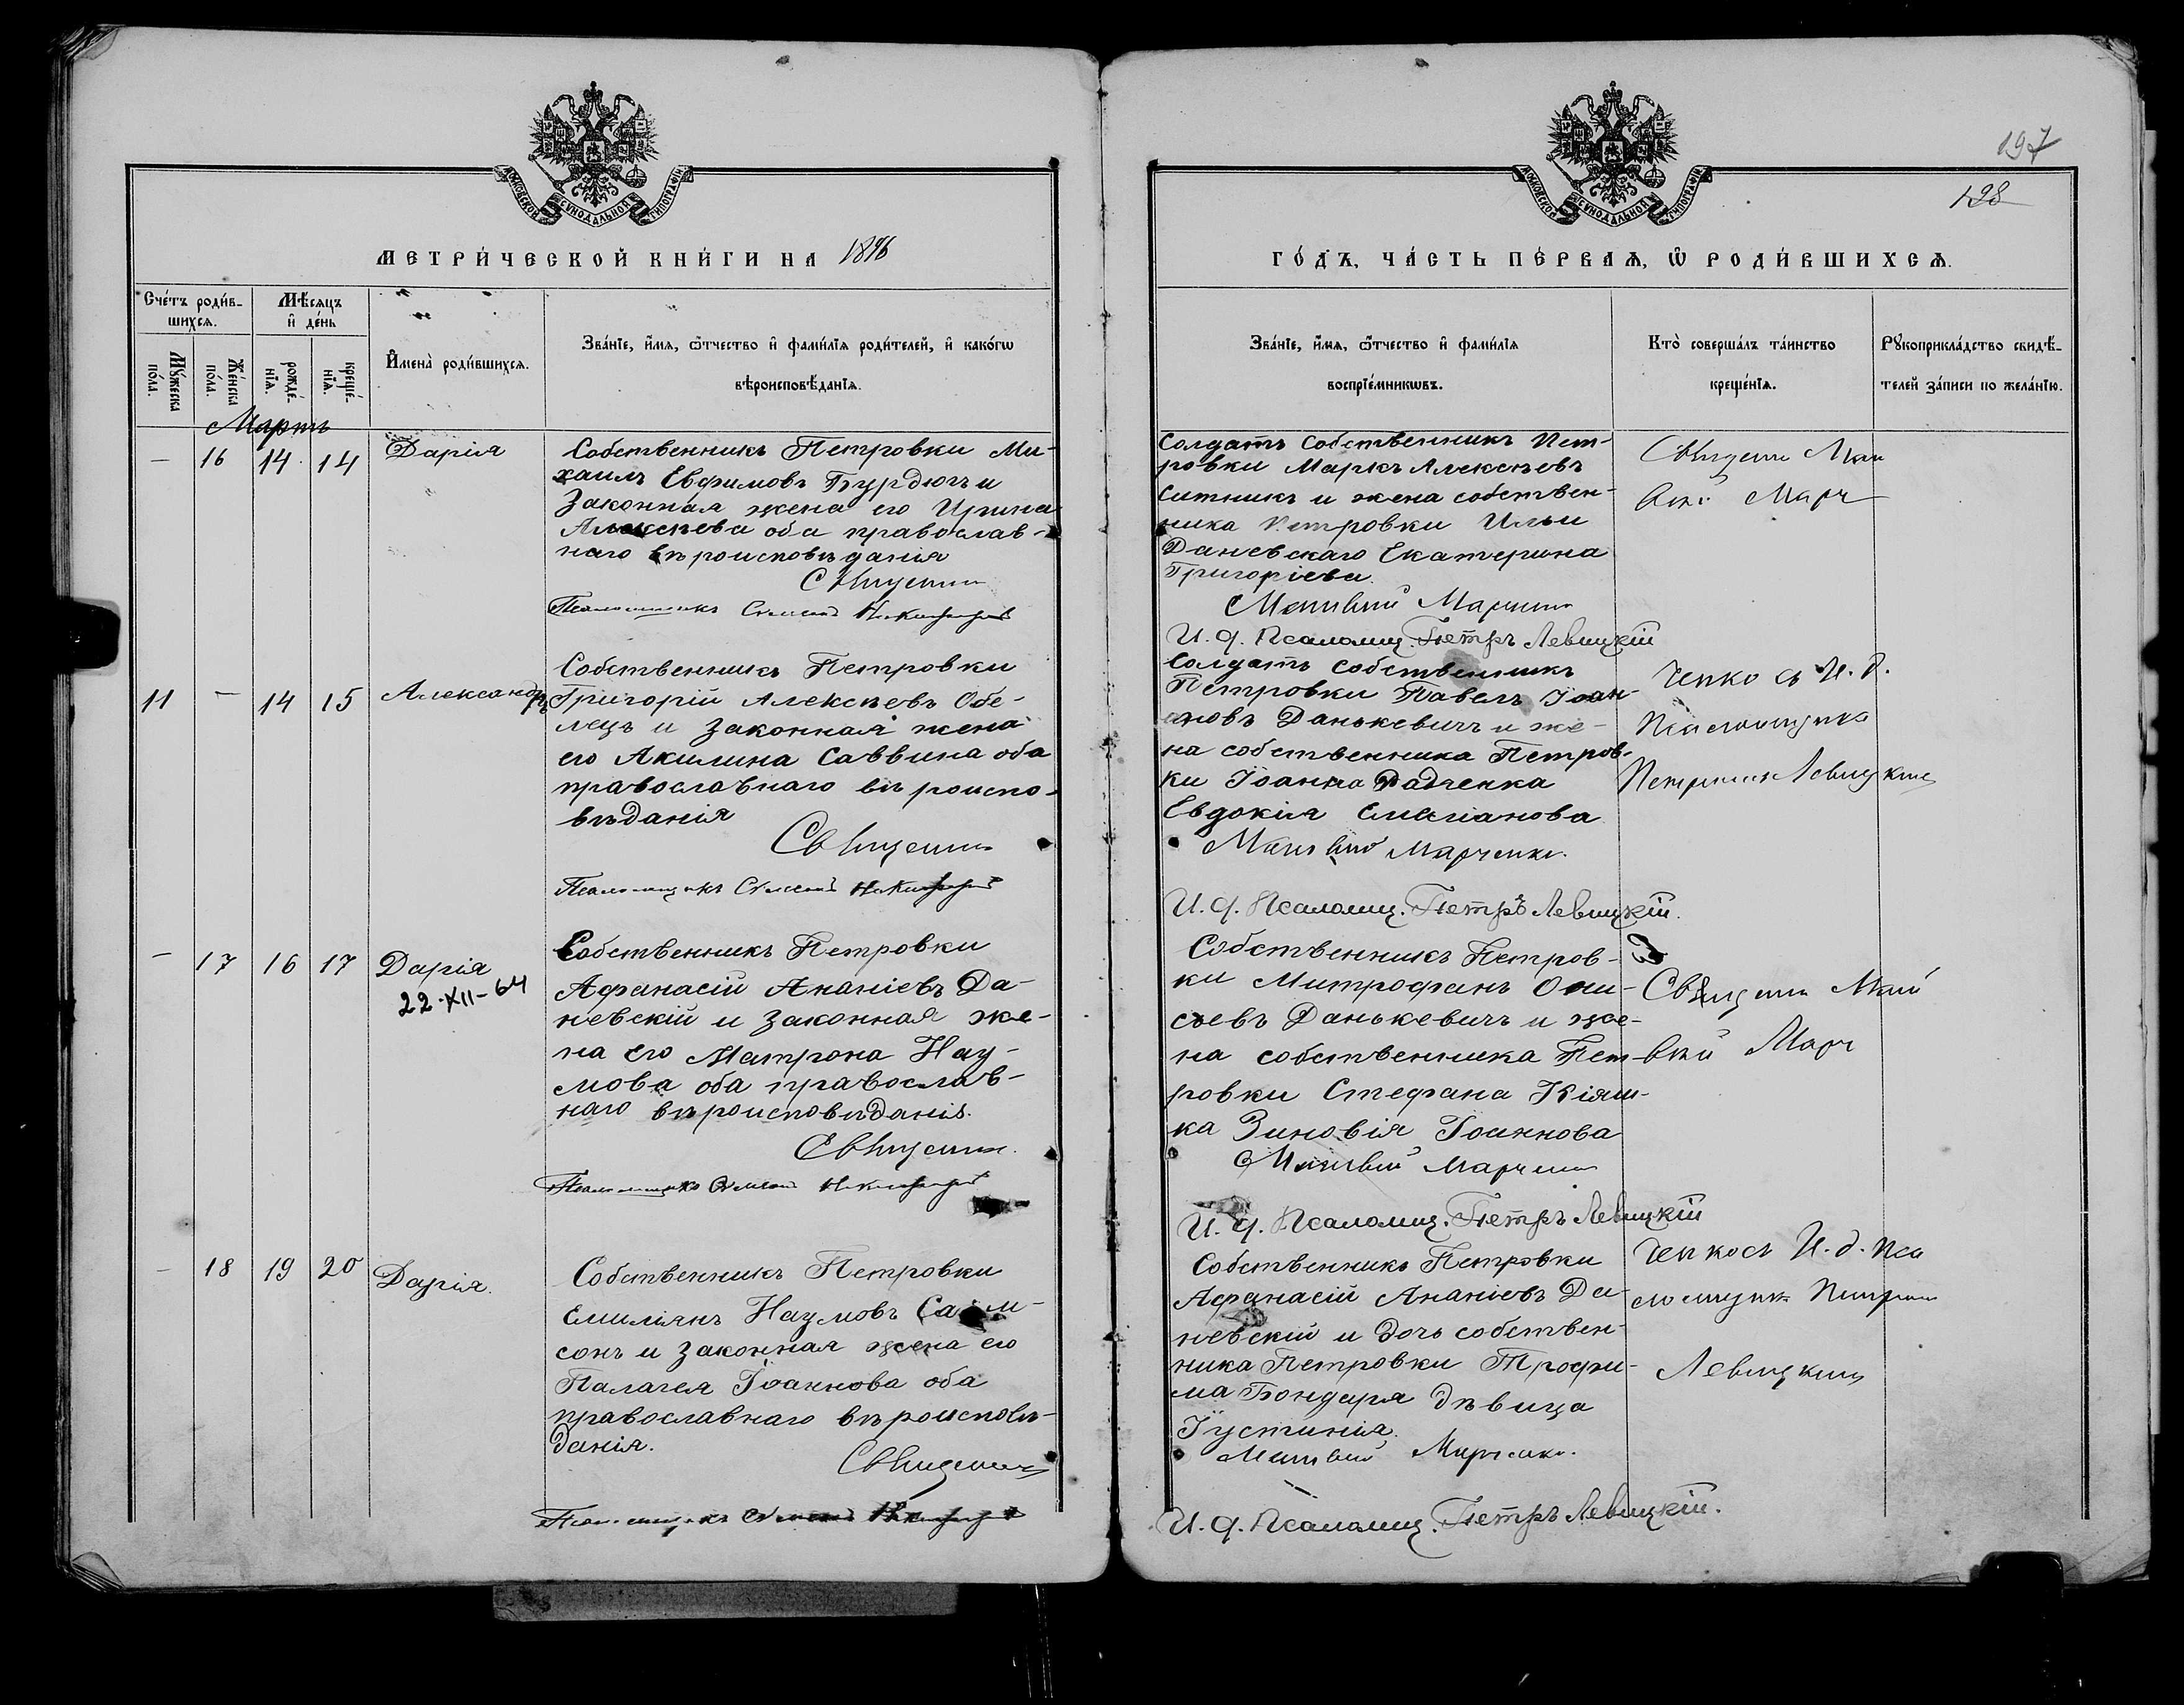 МОСКОВСКОЙ СѴНОДАЛЬНОЙ ТИПОГРАФІИ
МЕТРИ́ЧЕСКОЙ КНИ́ГИ НА 1896
Сче́тъ роди́в-
шихсѧ.
Мѣ́сѧцъ
и҆ де́нь
Мꙋ́жеска
по́ла.
Же́нска
по́ла.
рожде́-
нїѧ.
креще́-
нїѧ.
И҆мена̀ роди́вшихсѧ.
Зва́нїе, и҆́мѧ, ѻ҆́тчество и҆ фами́лїѧ роди́телей, и҆ како́гѡ
вѣроисповѣ́данїѧ.
Мартъ
— 16 14 14 Дарія
Собственникъ Петровки Ми-
хаилъ Евфимовъ Бурдюгъ и
законная жена его Ирина
Алексѣева оба православ-
наго вѣроисповѣданія
Священни
Псаломщикъ Симеонъ Никифоровъ
11 — 14 15 Александръ
Собственникъ Петровки
Григорій Алексѣевъ Обе-
лецъ и законная жена
его Акилина Саввина оба
православнаго вѣроиспо-
вѣданія
Священни
Псаломщикъ Симеонъ Никифоровъ
— 17 16 17 Дарія
22-XII-64
Собственникъ Петровки
Афанасій Ананіевъ Да-
невскій и законная же-
на его Матрона Нау-
мова оба православ-
наго вѣроисповѣданія.
Священни
Псаломщикъ Симеонъ Никифоровъ
— 18 19 20 Дарія.
Собственникъ Петровки
Емиліянъ Наумовъ Сам-
сонъ и законная жена его
Палагея Іоаннова оба
православнаго вѣроисповѣ-
данія.
Священни
Псаломщикъ Симеонъ Никифоровъ
197
198
МОСКОВСКОЙ СѴНОДАЛЬНОЙ ТИПОГРАФІИ
ГО́ДЪ, ЧА́СТЬ ПЕ́РВАѦ, Ѡ҆ РОДИ́ВШИХСѦ.
Зва́нїе, и҆́мѧ, ѻ҆́тчество и҆ фами́лїѧ
воспрїе́мникѡвъ.
Кто̀ соверша́лъ та́инство
креще́нїѧ.
Рꙋкоприкла́дство свидѣ́-
телей за́писи по жела́нїю.
Солдатъ собственникъ Пет-
ровки Маркъ Алексѣевъ
Ситникъ и жена собствен-
ника Петровки Ильи
Даневскаго Екатерина
Григоріева.
Матвій Марченко
И. д. Псаломщ. Петръ Левицкій
Священни Мат
вій Марч
Солдатъ собственникъ
Петровки Павелъ Іоан-
новъ Данькевичъ и же-
на собственника Петров-
ки Іоанна Радченка
Евдокія Емеліанова
Матвій Марченко.
И. д. Псаломщ. Петръ Левицкій.
ченко съ И. д.
Псаломщика
Петромъ Левицким
Собственникъ Петров-
ки Митрофанъ Они-
сьевъ Данькевичъ и же-
на собственника Пет-
ровки Стефана Кіяш-
ка Зиновія Іоаннова
Матвій Марченко
И. д. Псаломщ. Петръ Левицкій
Священни Мат
вій Марч
Собственникъ Петровки
Афанасій Ананіевъ Да-
невскій и дочь собствен-
ника Петровки Трофи-
ма Бондаря дѣвица
Іустинія.
Матвій Марченко.
И. д. Псаломщ. Петръ Левицкій.
ченкосъ И. д. Пса
ломщик Петром
Левицким